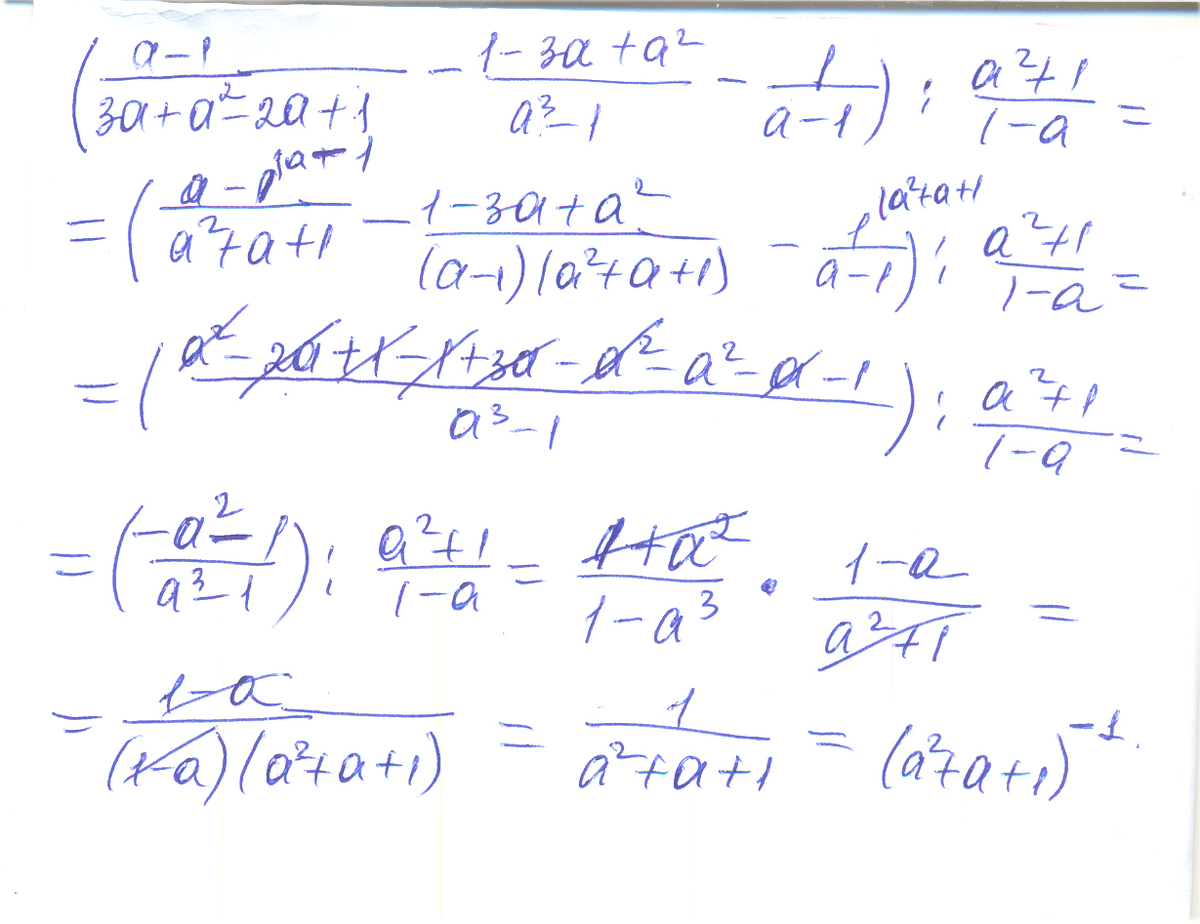 (a-1/(3a+a²-2a+1) - (1-3a+a²)/(a³-1) - 1/(a-1)) : (a²+1)/(1-a) =
= ((a-1)^{|a-1}/(a²+a+1) - (1-3a+a²)/((a-1)(a²+a+1)) - 1^{|a²+a+1}/(a-1)) : (a²+1)/(1-a) =
= ((a²-2a+1-1+3a-a²-a²-a-1)/(a³-1)) : (a²+1)/(1-a) =
= ((-a²-1)/(a³-1)) : (a²+1)/(1-a) = (1+a²)/(1-a³) · (1-a)/(a²+1) =
= (1-a)/((1-a)(a²+a+1)) = 1/(a²+a+1) = (a²+a+1)⁻¹.